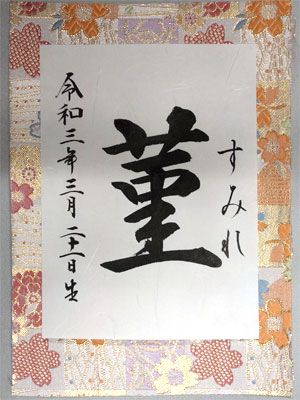 すみれ
菫
令和三年三月二十一日生